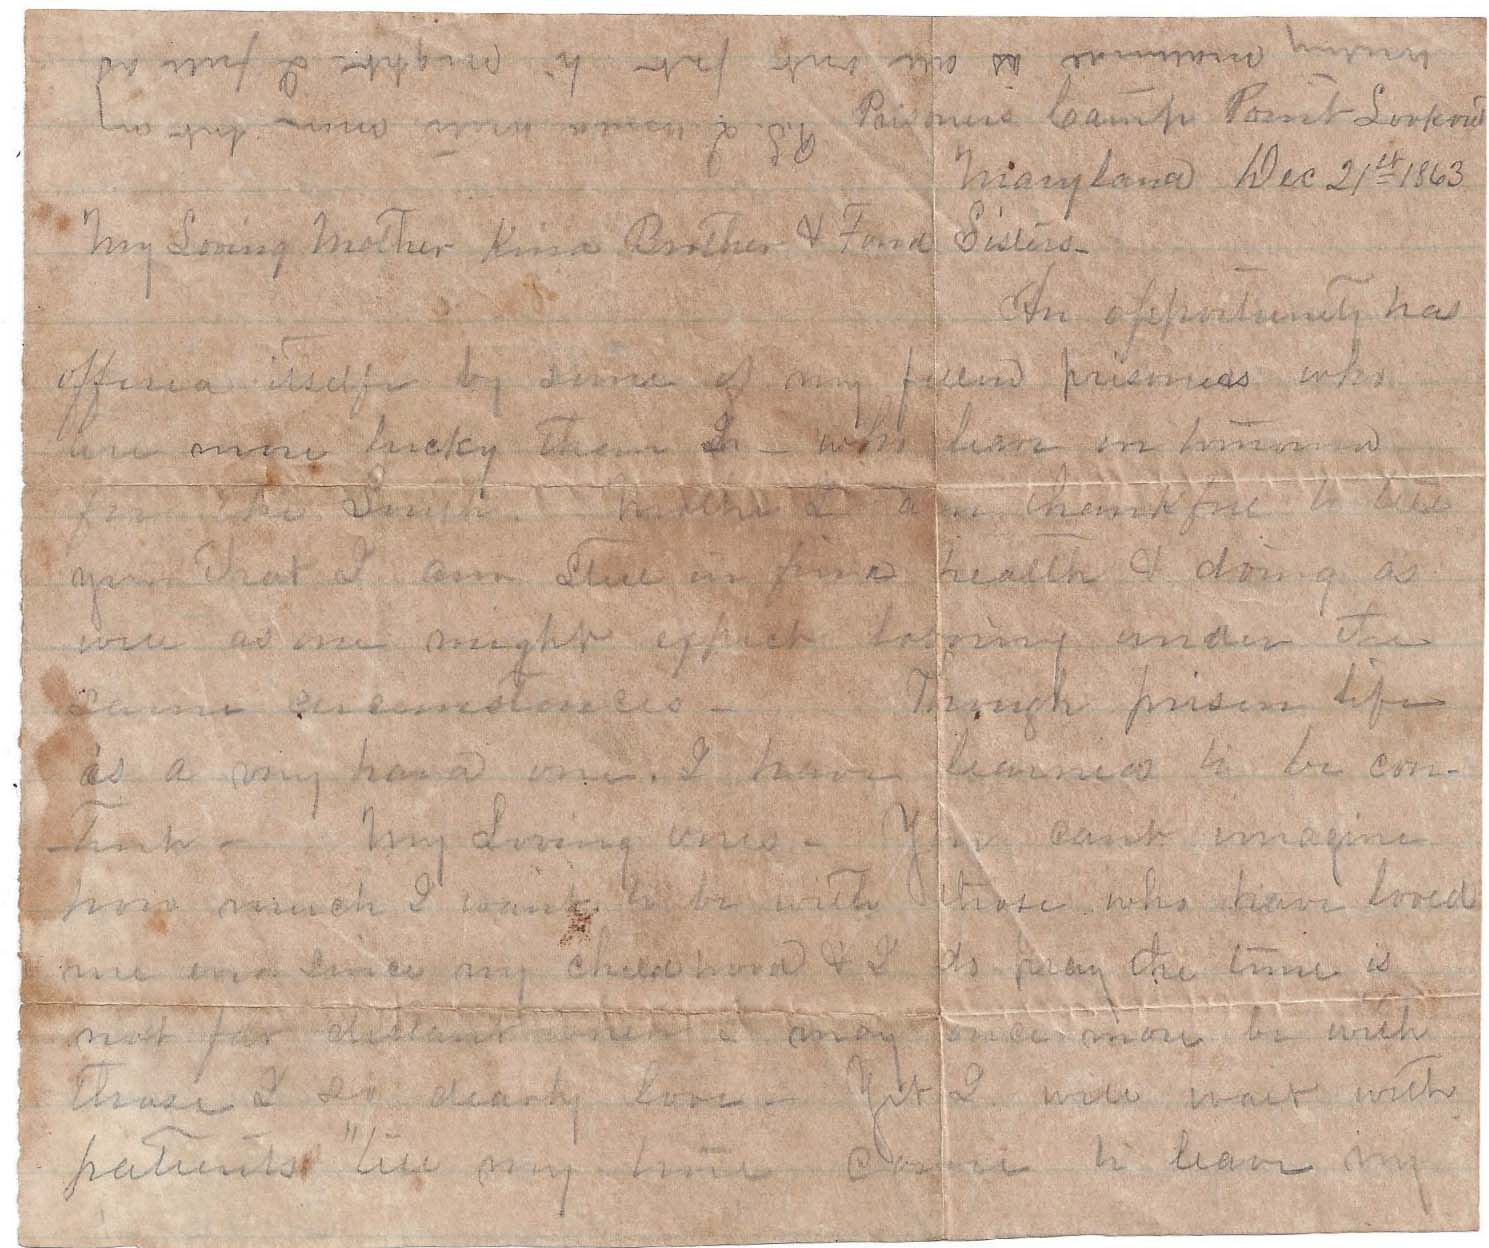 Prisoners Camp Point Lookout
Maryland Dec 21st 1863
My Loving Mother Kind Brother & Fond Sisters
An opportunity has
offered itself by some of my friend prisoners who
are more lucky than I - who leave on tomorrow
for the South. Mother I am thankful to tell
you that I am still in fine health & doing as
well as one might expect laboring under the
same circumstances - Though prison life
is a very hard one. I have learned to be con-
tent - My Loving ones - You cant imagine
how much I want to be with those who have loved
me ever since my childhood & I do pray the time is
not far distant when I may once more be with
those I so dearly love - Yet I will wait with
patients "till my time come to leave my
P.S. I would write more but my
as all but I might I full as